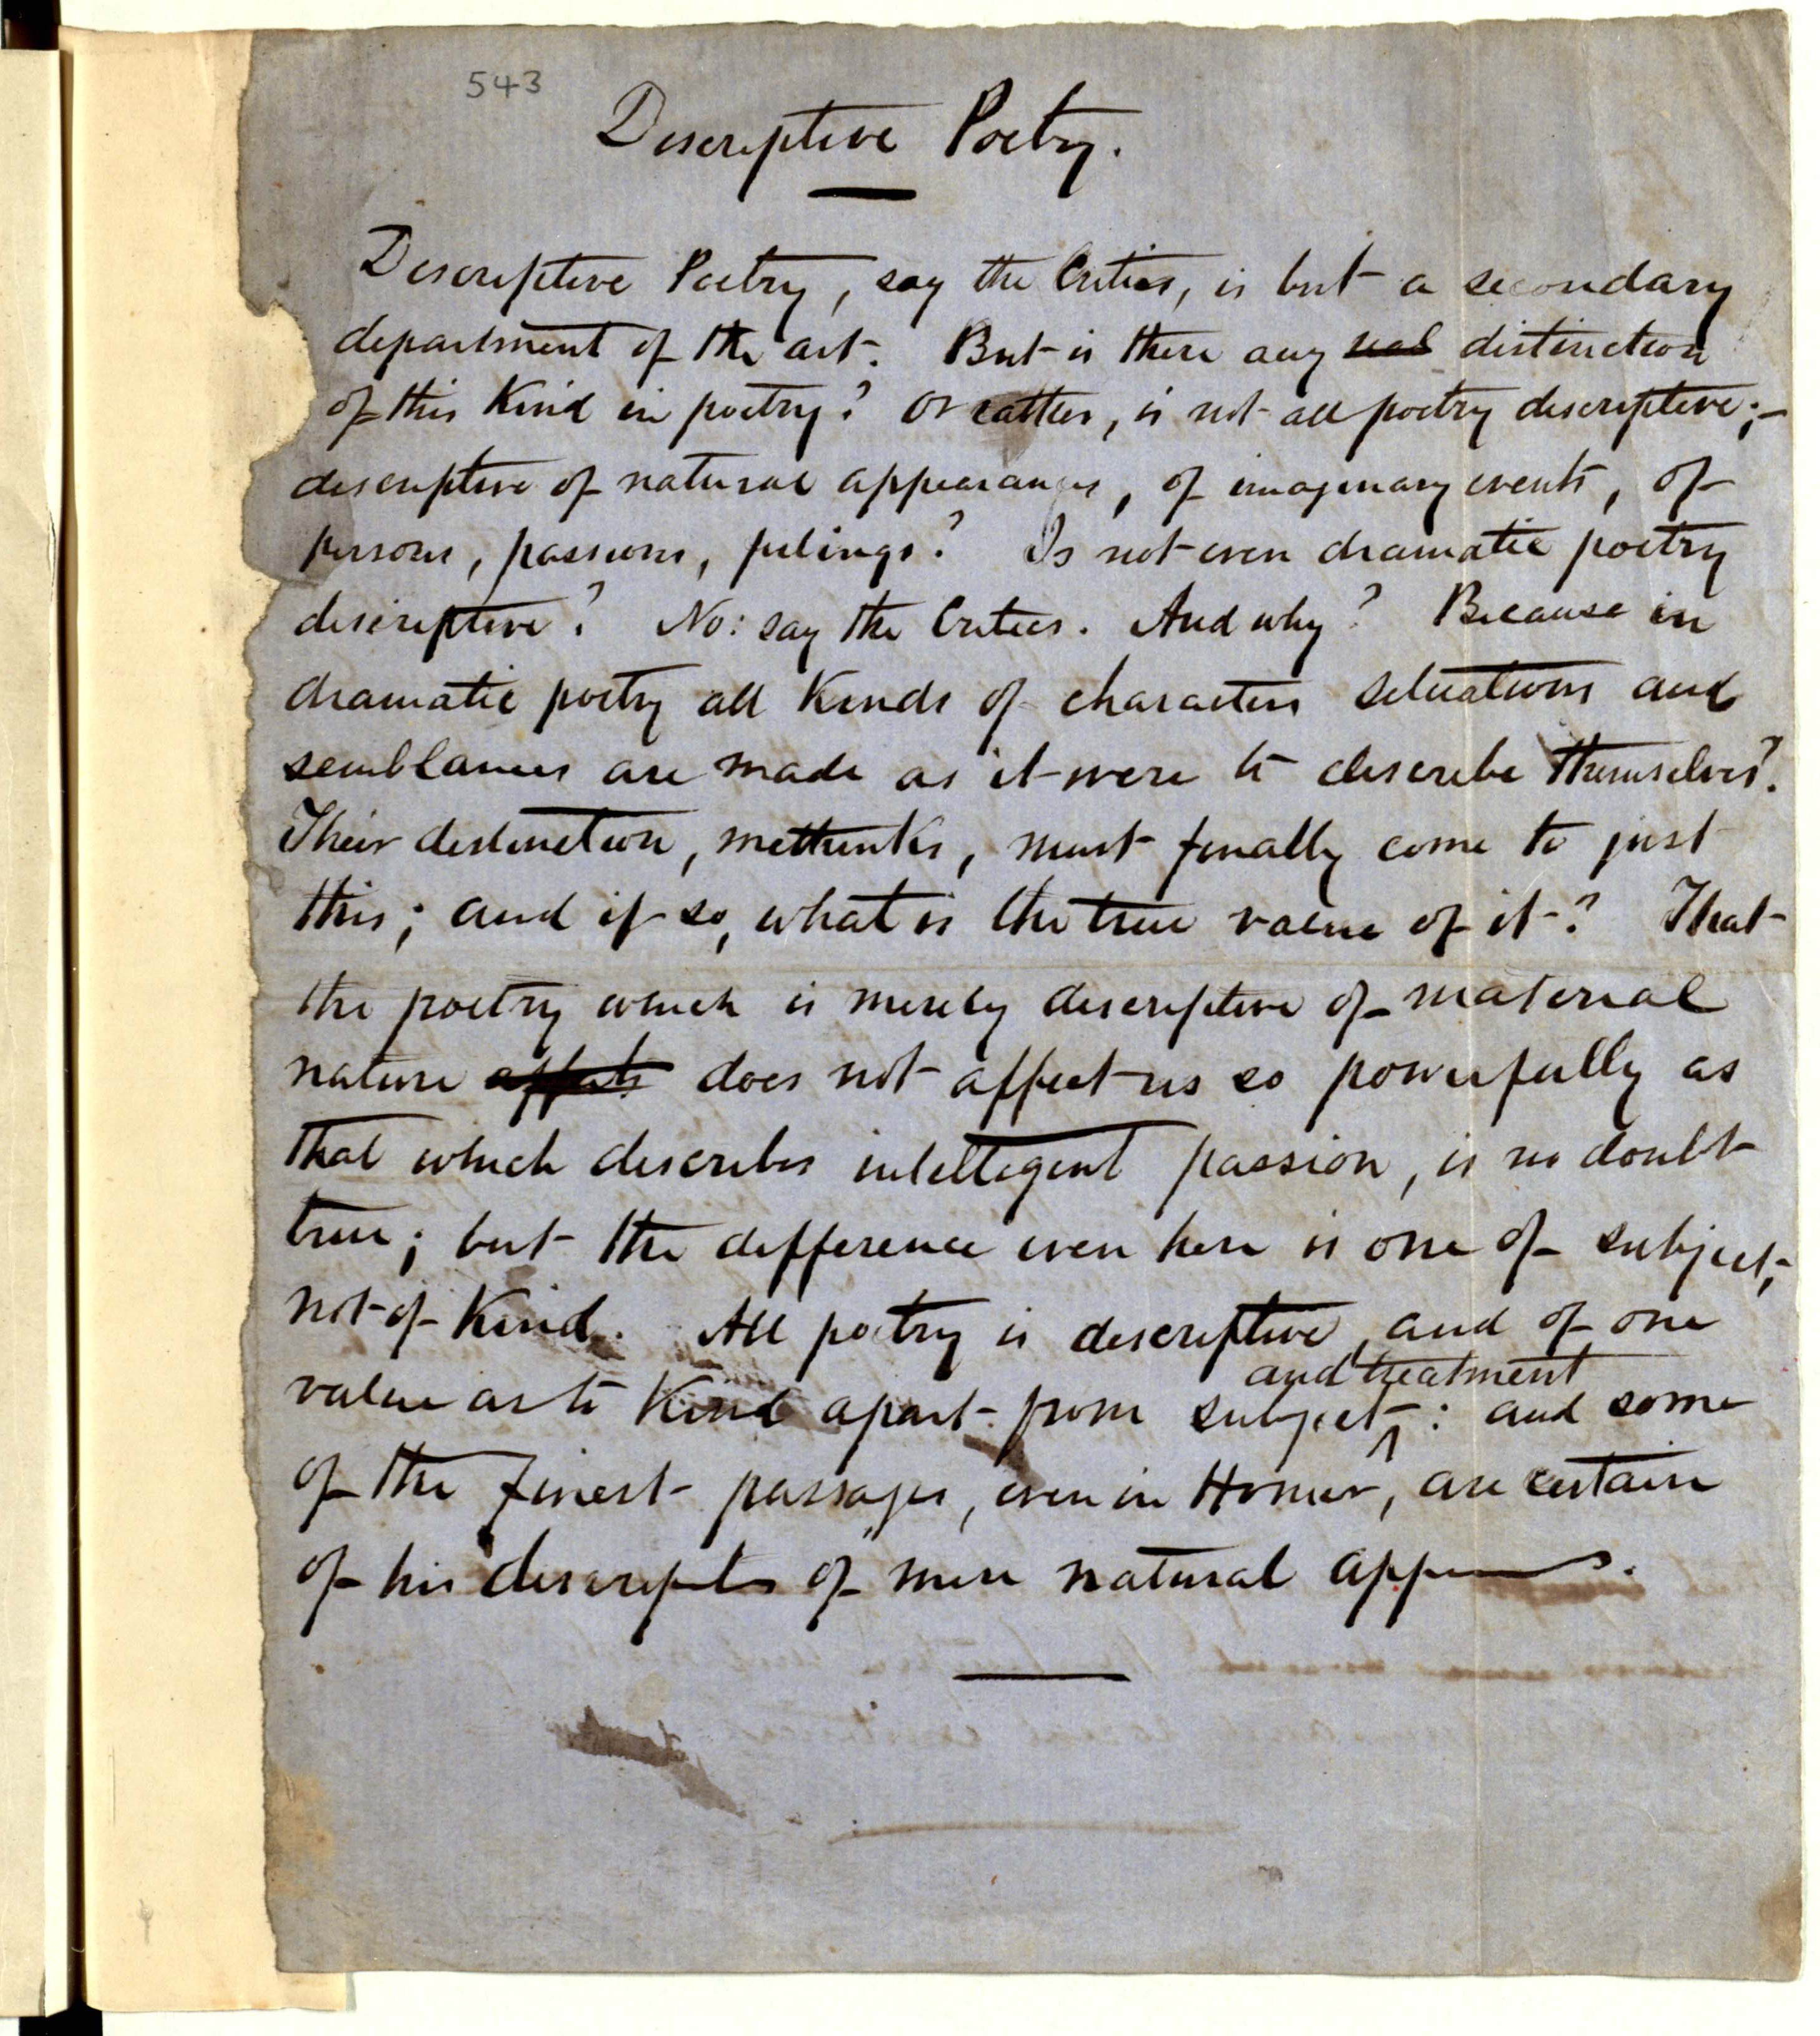 543
Descriptive Poetry.
Descriptive Poetry, say the Critics, is but a secondary
department of the art. But is there any real distinction
of this Kind in poetry? Or rather, is not all poetry descriptive;—
descriptive of natural appearances, of imaginary events, of
persons, passions, feelings? Is not even dramatic poetry
descriptive? No: say the Critics. And why? Because in
dramatic poetry all Kinds of characters situations and
semblances are made as it were to describe themselves?
Their distinction, methinks, must finally come to just
this; and if so, what is the true value of it? That
the poetry which is merely descriptive of material
nature affects does not affect us so powerfully as
that which describes intelligent passion, is no doubt
true; but the difference even here is one of subject,
not of Kind. All poetry is descriptive, and of one
and treatment
value as to Kind apart from subject: and some
of the finest passages, even in Homer, are certain
of his descripts of mere natural